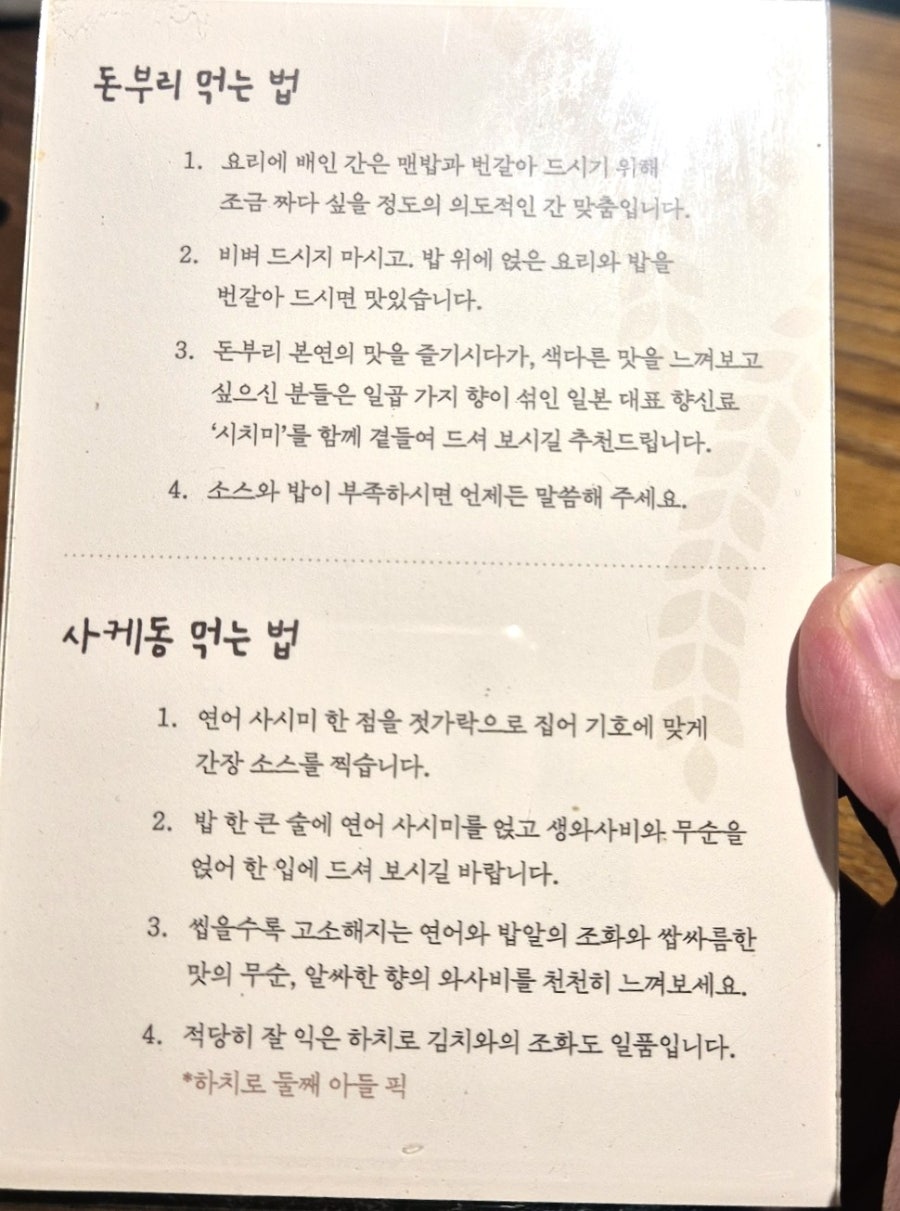 돈부리 먹는 법
1. 요리에 배인 간은 맨밥과 번갈아 드시기 위해
조금 짜다 싶을 정도의 의도적인 간 맞춤입니다.
2. 비벼 드시지 마시고. 밥 위에 얹은 요리와 밥을
번갈아 드시면 맛있습니다.
3. 돈부리 본연의 맛을 즐기시다가, 색다른 맛을 느껴보고
싶으신 분들은 일곱 가지 향이 섞인 일본 대표 향신료
‘시치미’를 함께 곁들여 드셔 보시길 추천드립니다.
4. 소스와 밥이 부족하시면 언제든 말씀해 주세요.
사케동 먹는 법
1. 연어 사시미 한 점을 젓가락으로 집어 기호에 맞게
간장 소스를 찍습니다.
2. 밥 한 큰 술에 연어 사시미를 얹고 생와사비와 무순을
얹어 한 입에 드셔 보시길 바랍니다.
3. 씹을수록 고소해지는 연어와 밥알의 조화와 쌉싸름한
맛의 무순, 알싸한 향의 와사비를 천천히 느껴보세요.
4. 적당히 잘 익은 하치로 김치와의 조화도 일품입니다.
*하치로 둘째 아들 픽